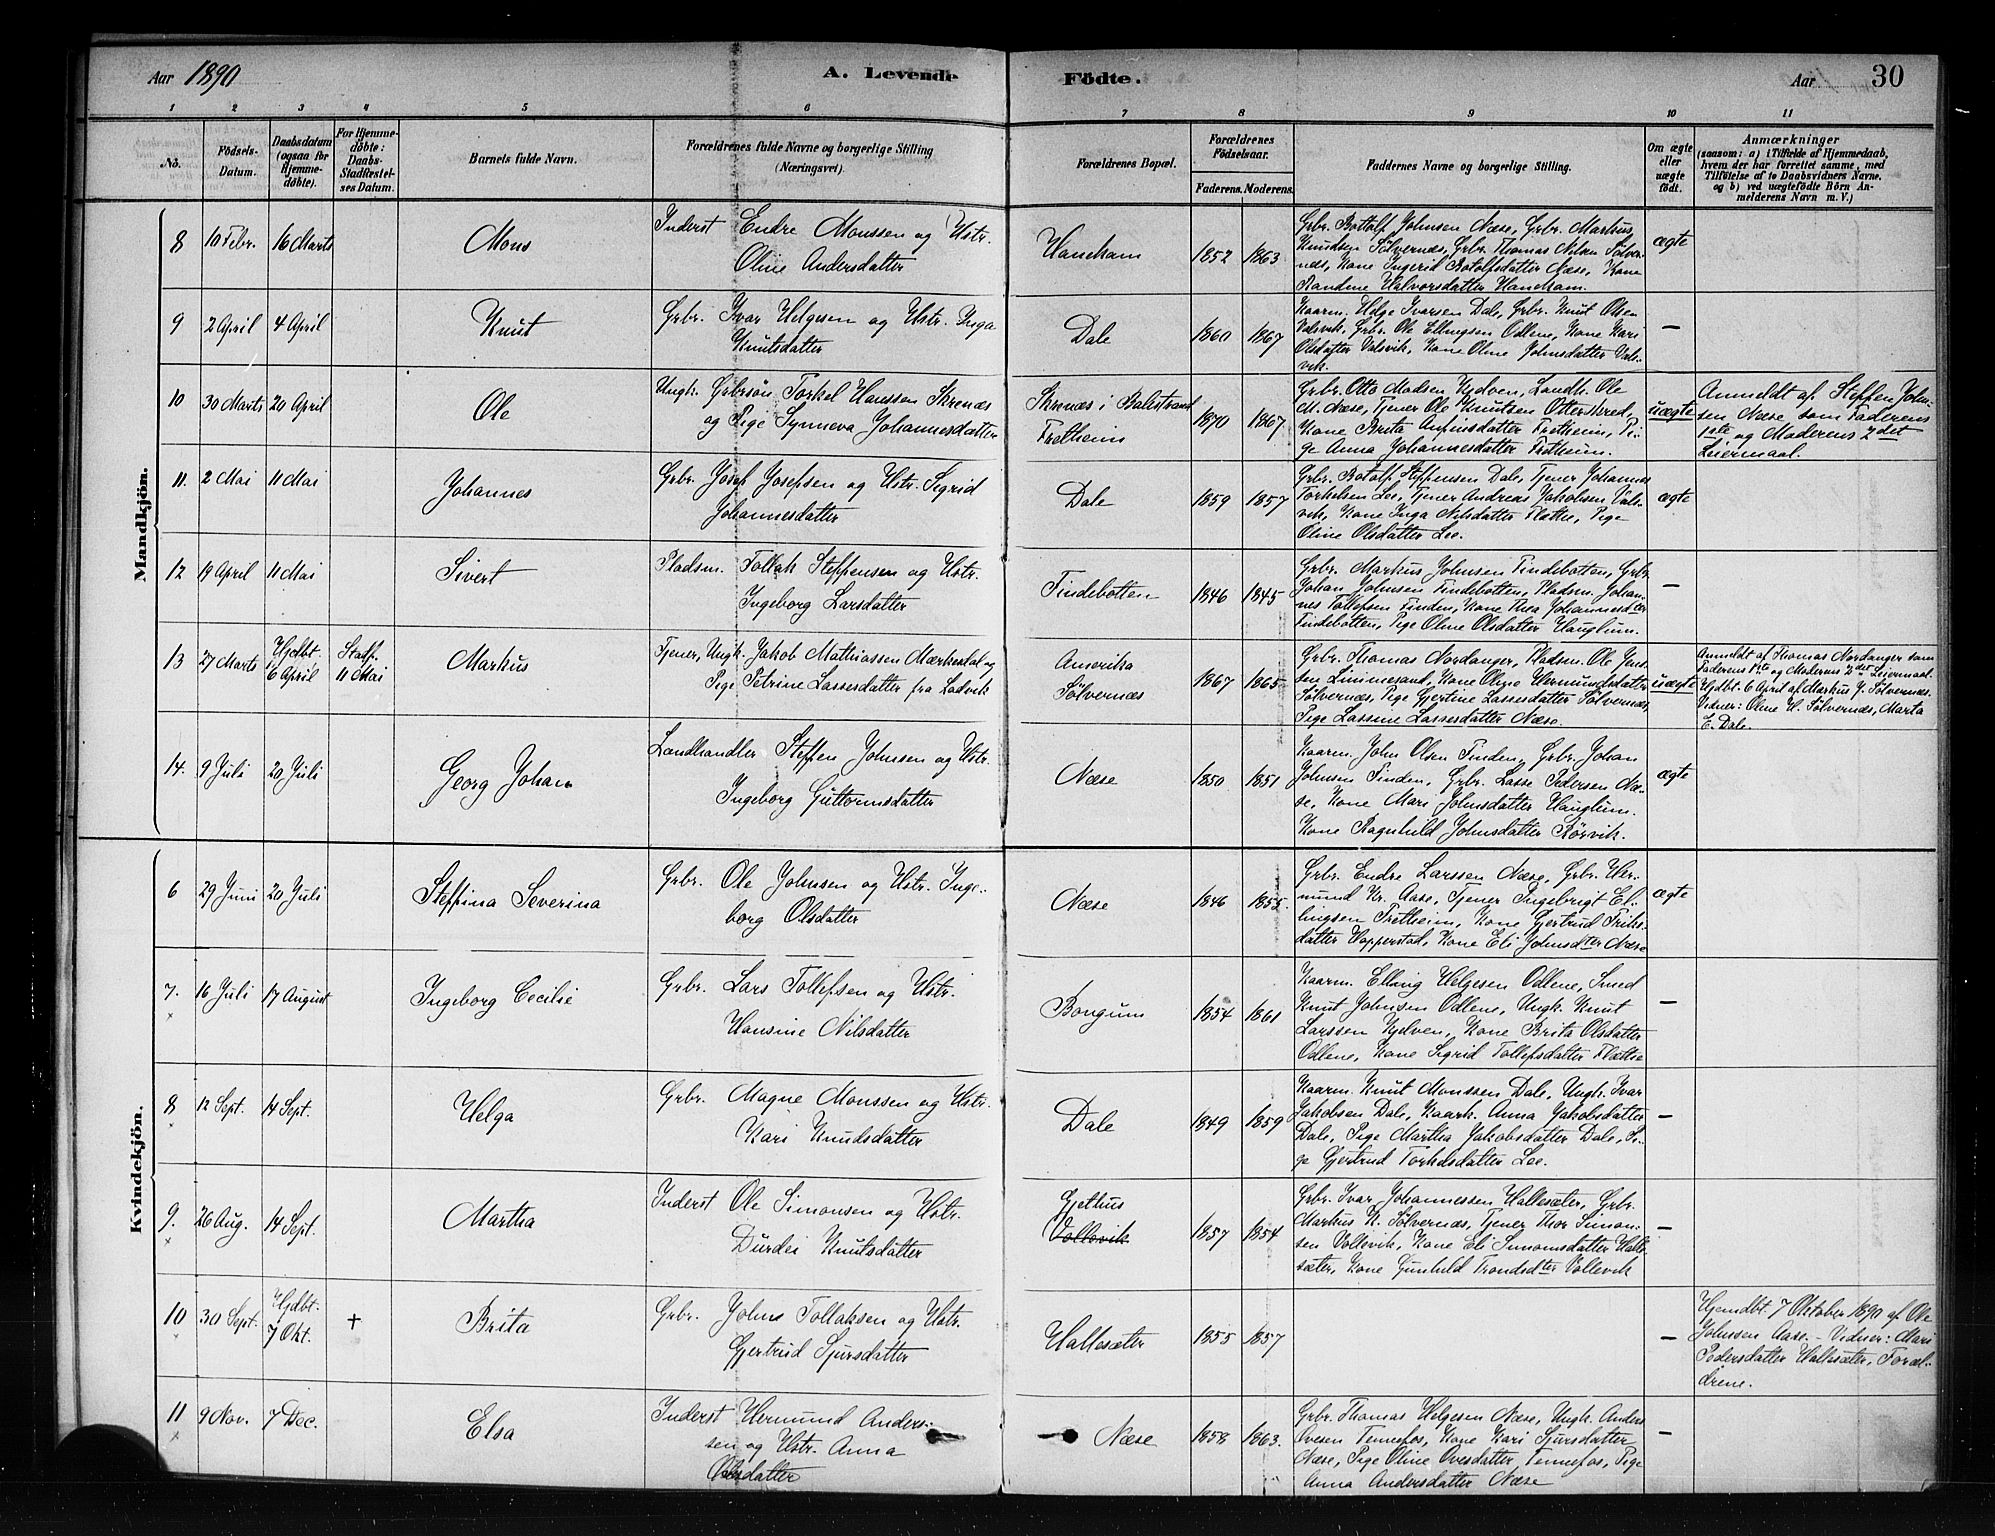 Aar 1890
A. Levende
Födte.
Aar
30
1 2 3 4 5 6 7 8 9 10 11
No.
Födsels-
Datum.
Daabsdatum
(ogsaa for
Hjemme-
döbte).
For Hjemme-
döbte:
Daabs-
Stadfæstel-
ses Datum.
Barnets fulde Navn.
Forældrenes fulde Navne og borgerlige Stilling
(Næringsvei).
Forældrenes Bopæl.
Forældrenes
Födselsaar.
Faderens. Moderens.
Faddernes Navne og borgerlige Stilling.
Om ægte
eller
uægte
födt.
Anmærkninger
(saasom: a) i Tilfælde af Hjemmedaab,
hvem der har forrettet samme, med
Tilföielse af to Daabsvidners Navne,
og b) ved uægtefödte Börn An-
melderens Navn m. V.)
Mandkjön.
8 10 Febr. 16 Marts
Mons
Inderst Endre Monssen og Hstr.
Oline Andersdatter
Hanekam
1852 1863
Grbr. Bottolf Johnsen Næse, Grbr. Markus
Knudsen Sölvernæs, Grbr. Thomas Nilsen Sölver-
næs, Kone Ingerid Botolfsdatter Næse, Kone
Randine Halvorsdatter Hanekam.
ægte
9 2 April 4 April
Knut
Grbr. Ivar Helgesen og Hstr. Inga
Knutsdatter
Dale
1860 1867
Kaarm. Helge Ivarsen Dale, Grbr. Knut Olsen
Valsvik, Grbr. Ole Ellingsen Odlene, Kone Kari
Olsdatter Valsvik, Kone Oline Johnsdatter Vals-
vik.
—
10 30 Marts 20 April
Ole
Ungk. Grbrsön Torkel Hanssen Skrenæs
og Pige Synneva Johannesdatter
Skrenæs i Balestrand
Fretheim
1870 1867
Grbr. Otto Madsen Kjelven, Landh. Ole
M. Næse, Tjener Ole Knutsen Otterskred,
Kone Brita Anfinsdatter Fretheim, Pi-
ge Anna Johannesdatter Fretheim.
uægte
Anmeldt af Steffen John-
sen Næse som Faderens
1ste og Moderens 2det
Leiermaal.
11. 2 Mai 11 Mai
Johannes
Grbr. Josef Josefsen og Hstr. Sigrid
Johannesdatter
Dale
1859 1857
Grbr. Botolf Steffensen Dale, Tjener Johannes
Torkelsen Lee, Tjener Andreas Jakobsen Vals-
vik, Kone Inga Nilsdatter Flatlie, Pige
Oline Olsdatter Lee.
ægte
12 19 April 11 Mai
Sivert
Pladsm. Tollak Steffensen og Hstr.
Ingeborg Larsdatter
Findebotten
1846 1845
Grbr. Markus Johnsen Findebotten, Grbr.
Johan Johnsen Findebotten, Pladsm. Johan-
nes Tollefsen Finden, Kone Thea Johannesdter
Findebotten, Pige Oline Olsdatter Hauglum.
—
13 27 Marts
Hjdbt.
6 April
Stadf.
11 Mai
Markus
Tjener, Ungk. Jakob Mathiassen Mærkesdal og
Pige Petrine Lassesdatter fra Ladvik
Amerika
Sölvernæs
1867 1865
Grbr. Thomas Nordanger, Pladsm. Ole Jens-
sen Linnesand, Kone Oline Hermundsdatter
Sölvernæs, Pige Gjertine Lassesdatter Sölvernæs,
Pige Lassine Lassesdatter Næse.
uægte
Anmeldt af Thomas Nordanger som
Faderens 1ste og Moderens 2det Leiermaal.
Hjdbt. 6 April af Markus J. Sölvernæs.
Vidner: Oline H. Sölvernæs, Marta
E. Dale.
14. 9 Juli 20 Juli
Georg Johan
Landhandler Steffen Johnsen og Hstr.
Ingeborg Guttormsdatter
Næse
1850 1851
Kaarm. John Olsen Finden, Grbr. Johan
Johnsen Finden, Grbr. Lasse Pedersen Næ-
se, Kone Mari Johnsdatter Hauglum.
Kone Ragnhild Johnsdatter Rörvik.
ægte
Kvindekjön.
6 29 Juni 20 Juli
Steffina Severina
Grbr. Ole Johnsen og Hstr. Inge-
borg Olsdatter
Næse
1846 1855.
Grbr. Endre Larssen Næse, Grbr. Her-
mund Kr. Aase, Tjener Ingebrigt El-
lingsen Fretheim, Kone Gjertrud Friks-
datter Hopperstad, Kone Eli Johnsdter Næse
ægte
7. 16 Juli 17 August
×
Ingeborg Cecilie
Grbr. Lars Tollefsen og Hstr.
Hansine Nilsdatter
Bongum
1854 1861
Kaarm. Elling Helgesen Odlene, Smed
Knut Johnsen Odlene, Ungk. Knut
Larssen Kjelven, Kone Brita Olsdatter
Odlene, Kone Sigrid Tollefsdatter Flatlie
—
8 12 Sept. 14 Sept.
×
Helga
Grbr. Magne Monssen og Hstr.
Kari Knudsdatter
Dale
1849 1859
Kaarm. Knut Monssen Dale, Ungk. Ivar
Jakobsen Dale, Kaark. Anna Jakobsdatter
Dale, Pige Martha Jakobsdatter Dale, Pi-
ge Gjertrud Torkelsdatter Lee.
—
9. 26 Aug. 14 Sept.
×
Martha
Inderst Ole Simonsen og Hstr.
Durdei Knutsdatter
Gjethus
Vollevik
1857 1854
Grbr. Ivar Johannessen Hallesæter, Grbr.
Markus K. Sölvernæs, Tjener Thor Simon-
sen Vollevik, Kone Eli Simonsdatter Halle-
sæter, Kone Gunhild Trondsdter Vollevik
—
10 30 Sept.
Hjdbt.
7 Okt.
+
×
Brita
Grbr. Johns Tollaksen og Hstr.
Gjertrud Sjursdatter
Hallesæter
1855 1857
—
Hjemdbt. 7 Oktober 1890 af Ole
Johnsen Aase. - Vidner: Mari
Pedersdatter Hallesæter, Foræl-
drene.
11 9 Nov. 7 Dec.
×
Elsa
Inderst Hermund Anders-
sen og Hstr. Anna
Olsdatter
Næse
1858 1863.
Grbr. Thomas Helgesen Næse, Ungk. Anders
Ovesen Tennefos, Kone Kari Sjursdatter
Næse, Pige Oline Ovesdatter Tennefos, Pige
Anna Andersdatter Næse
—